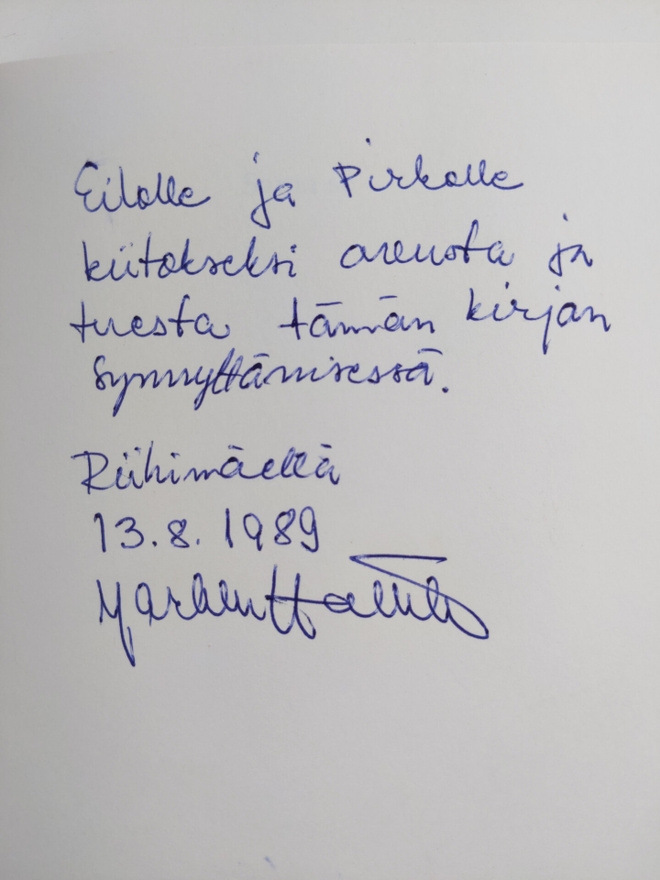 Eilalle ja Pirkolle
kiitokseksi avusta ja
tuesta tämän kirjan
synnyttämisessä.
Riihimäellä
13.8.1989